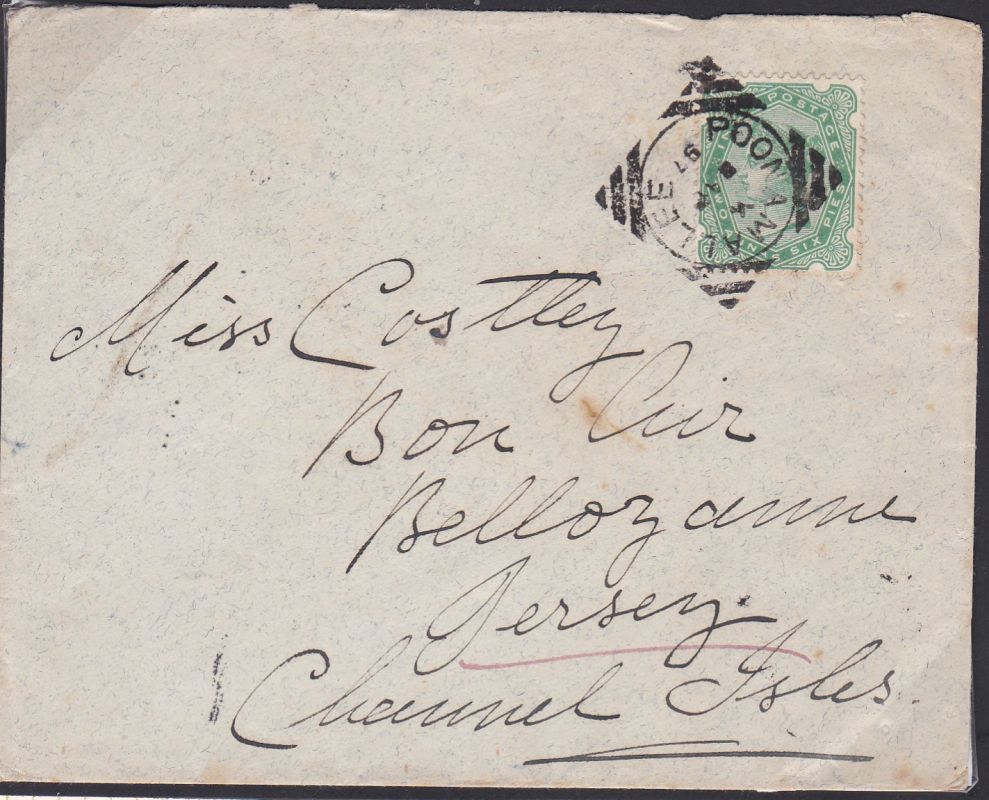 INDIA POSTAGE
TWO ANNAS SIX PIES
POONAMALLEE
91
Miss Costley
Bon Air
Bellozanne
Jersey
Channel Isles